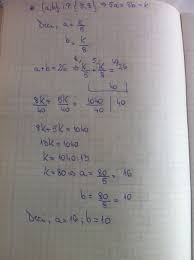 {a,b} i.p {5,8} ⇒ 5a = 8b = k
Deci, a = k/5
b = k/8
a+b=26 ⇒ k/5 + k/8 = 26
8k/40 + 5k/40 = 1040/40 | 40
8k+5k=1040
13k=1040
k=1040:13
k=80 ⇒ a = 80/5 = 16
b = 80/5 = 10
Deci, a=16; b=10